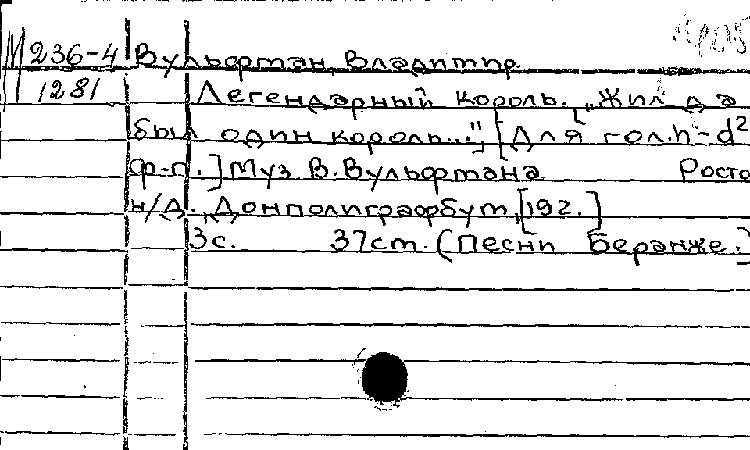 М 236-4 Вульфтан, Владимир
1281 Легендарный король. „Жил да
был один король...", [Для гол. h-d²
ф-п.] Муз В. Вульфтана Росто
н/Д., Донполиграфбум, [192.]
3с. 37см. (Песни Беранже.)